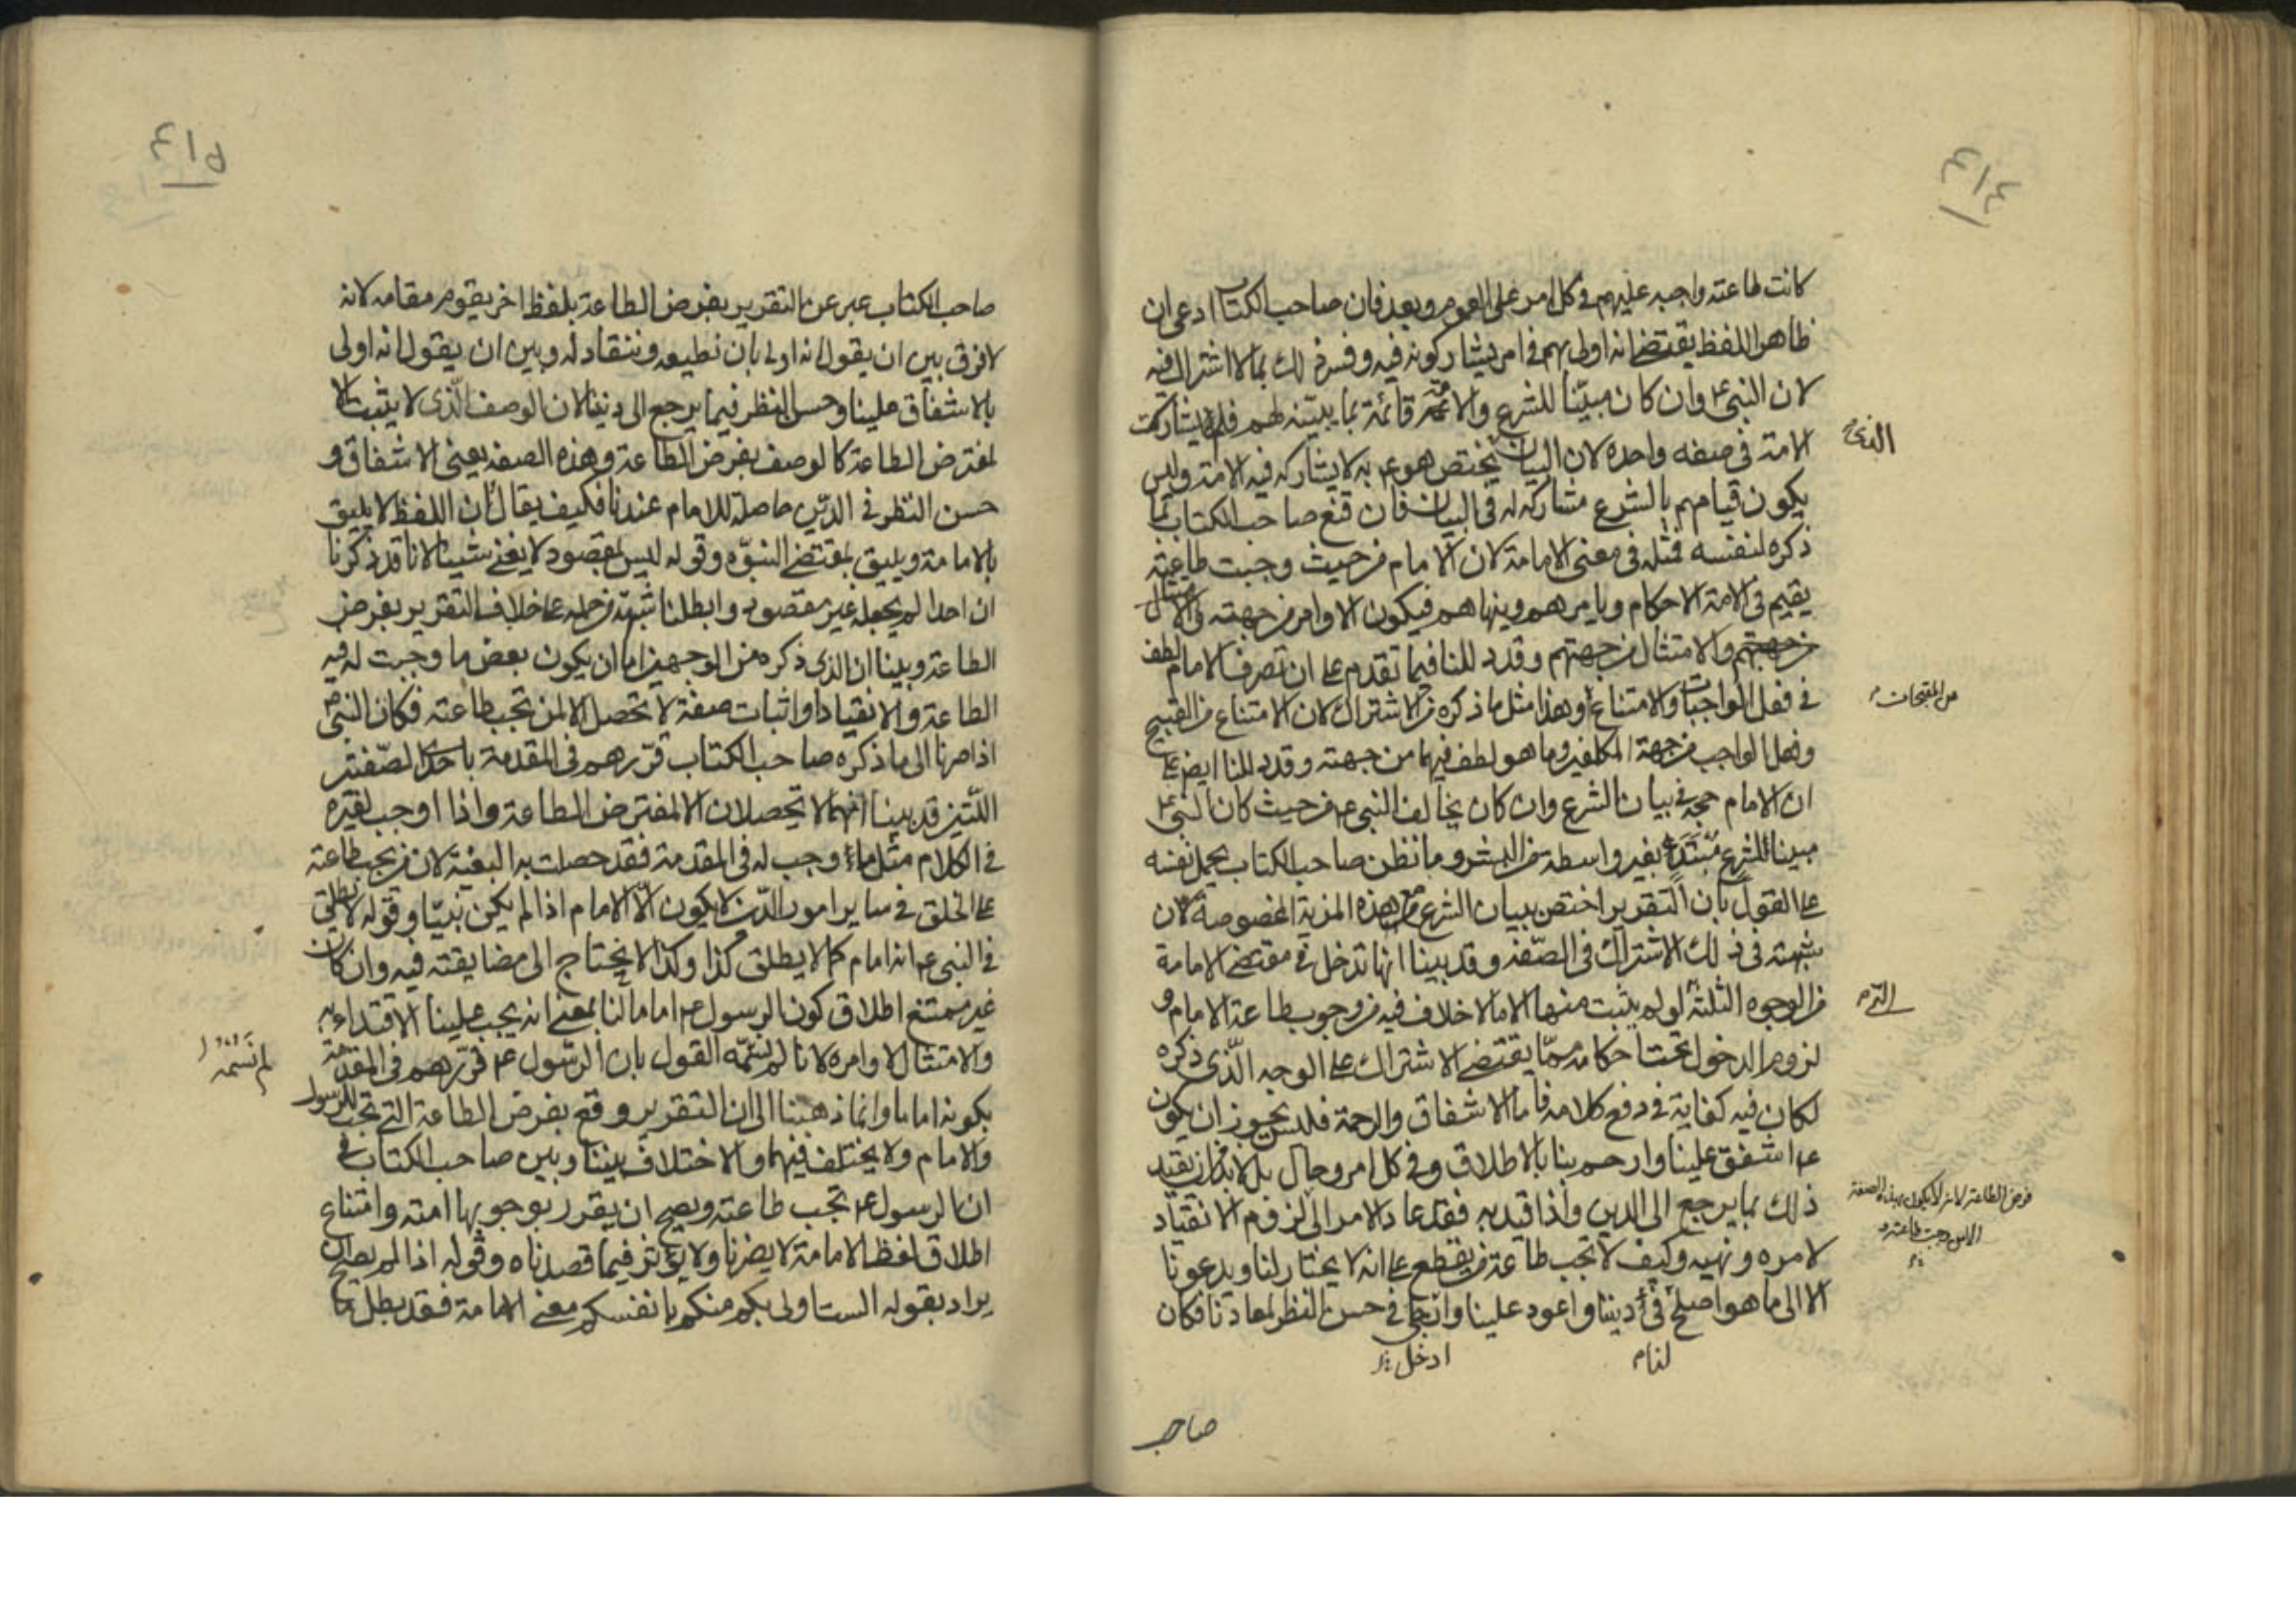 ٤١٤
كانت طاعته واجبه عليهم في كل امر على العموم وبعد فان صاحب الكتاب ادعى ان
ظاهر اللفظ يقتضى انه اولى بهم في امر يشاركونه فيه وفسر ذلك بما لا اشتراك فيه
لان النبي ع وان كان مبينا للشرع والائمة قائمة بما يبينه لهم فلم يشاركه
الامة في صفه واحده لان البيان يختص هو ع به لا يشاركه فيه الامة وليس
يكون قيامهم بالشرع مشاركه له في البيان فان قنع صاحب الكتاب بما
ذكره لنفسه فمثله في معنى الامامة لان الامام من حيث وجبت طاعته
يقيم في الامة الاحكام ويامرهم وينهاهم فيكون الاوامر من جهته والامتثال
من جهتهم والامتثال من جهتهم وقد دللنا فيما تقدم على ان تصرف الامام لطف
في فعل الواجبات والامتناع وهذا مثل ما ذكره من الاشتراك لان الامتناع من القبيح
من المقبحات
وفعل الواجب من جهة المكلفين وما هو لطف فيهما من جهته وقد دللنا ايضا على
ان الامام حجه في بيان الشرع وان كان يخالف النبي ع من حيث كان النبي ع
مبينا للشرع مبتدءا بغير واسطة من البشر وما نظن صاحب الكتاب يحمل نفسه
على القول بان التقرير اختص ببيان الشرع من هذه المزية المخصوصة لان
شبهته في ذلك الاشتراك في الصفة وقد بينا انها تدخل في مقتضى الامامة
من الوجوه الثلثة ولو لم يثبت منها الا ما لا خلاف فيه من وجوب طاعة الامام و
لزوم الدخول تحت احكامه مما يقتضى الاشتراك على الوجه الذى ذكره
لكان فيه كفاية في دفع كلامه فاما الاشفاق والرحمة فليس يجوز ان يكون
ع اشفق علينا وارحم بنا بالاطلاق وفي كل امر وحال بل لا بد من ان يقيد
ذلك بما يرجع الى الدين واذا قيد به فقد عاد الامر الى لزوم الانقياد
فرض الطاعة لانه لا يكون بهذه الصفة
الا من وجبت طاعته
لامره ونهيه وكيف لا تجب طاعة من يقطع على انه لا يختار لنا ويدعونا
الا الى ما هو اصلح في ديننا واعود علينا وانجى في حسن النظر لمعادنا فكان
لنا
ادخل
صاحب
٤١٥
صاحب الكتاب عبر عن التقرير بفرض الطاعة بلفظ اخر يقوم مقامه لانه
لا فرق بين ان يقول انه اولى بان نطيعه وننقاد له وبين ان يقول انه اولى
بالاشفاق علينا وحسن النظر فيما يرجع الى ديننا لان الوصف الذى لا يثبت الا
لمفترض الطاعة كالوصف بفرض الطاعة وهذه الصفه يعنى الاشفاق و
حسن النظر في الدين حاصلة للامام عندنا فكيف يقال ان اللفظ لا يليق
بالامامة ويليق بمقتضى النبوه وقوله ليس بمقصود لا يغنى شيئا لانا قد ذكرنا
ان احدا لم يجعله غير مقصود وابطلنا شبهة من حمله على خلاف التقرير بفرض
الطاعة وبينا ان الذى ذكره من الوجهين اما ان يكون بعض ما وجبت له فيه
الطاعة والانقياد او اثبات صفة لا تحصل الا لمن تجب طاعته فكان النبي ص
اذا صرنا الى ما ذكره صاحب الكتاب قررهم في المقدمة باحدى الصفتين
اللتين قد بينا انهما لا تحصلان الا لمفترض الطاعة واذا اوجب لغيره
في الكلام مثل ما وجب له في المقدمة فقد حصلت به البغية لان من يجب طاعته
على الخلق في ساير امور الدين لا يكون الا الامام اذا لم يكن نبيا وقوله لا يطلق
في النبي ع انه امام كما لا يطلق كذا وكذا لا يحتاج الى مضايقته فيه وان كان
غير ممتنع اطلاق كون الرسول ع اماما لنا بمعنى انه يجب علينا الاقتداء به
والامتثال لاوامره لانا لم نسمه القول بان الرسول ع قررهم في المقدمة
لم نسمه
بكونه اماما وانما ذهبنا الى ان التقرير وقع بفرض الطاعة التي تجب للرسول
والامام ولا يختلف فيهما والاختلاف بيننا وبين صاحب الكتاب في
ان الرسول ع تجب طاعته ويصح ان يقرر بوجوبها امته وامتناع
اطلاق لفظ الامامة لا يضرنا ولا يؤثر فيما قصدناه وقوله اذا لم يصح ان
يراد بقوله الست اولى بكم منكم بانفسكم معنى الامامة فقد بطل ما